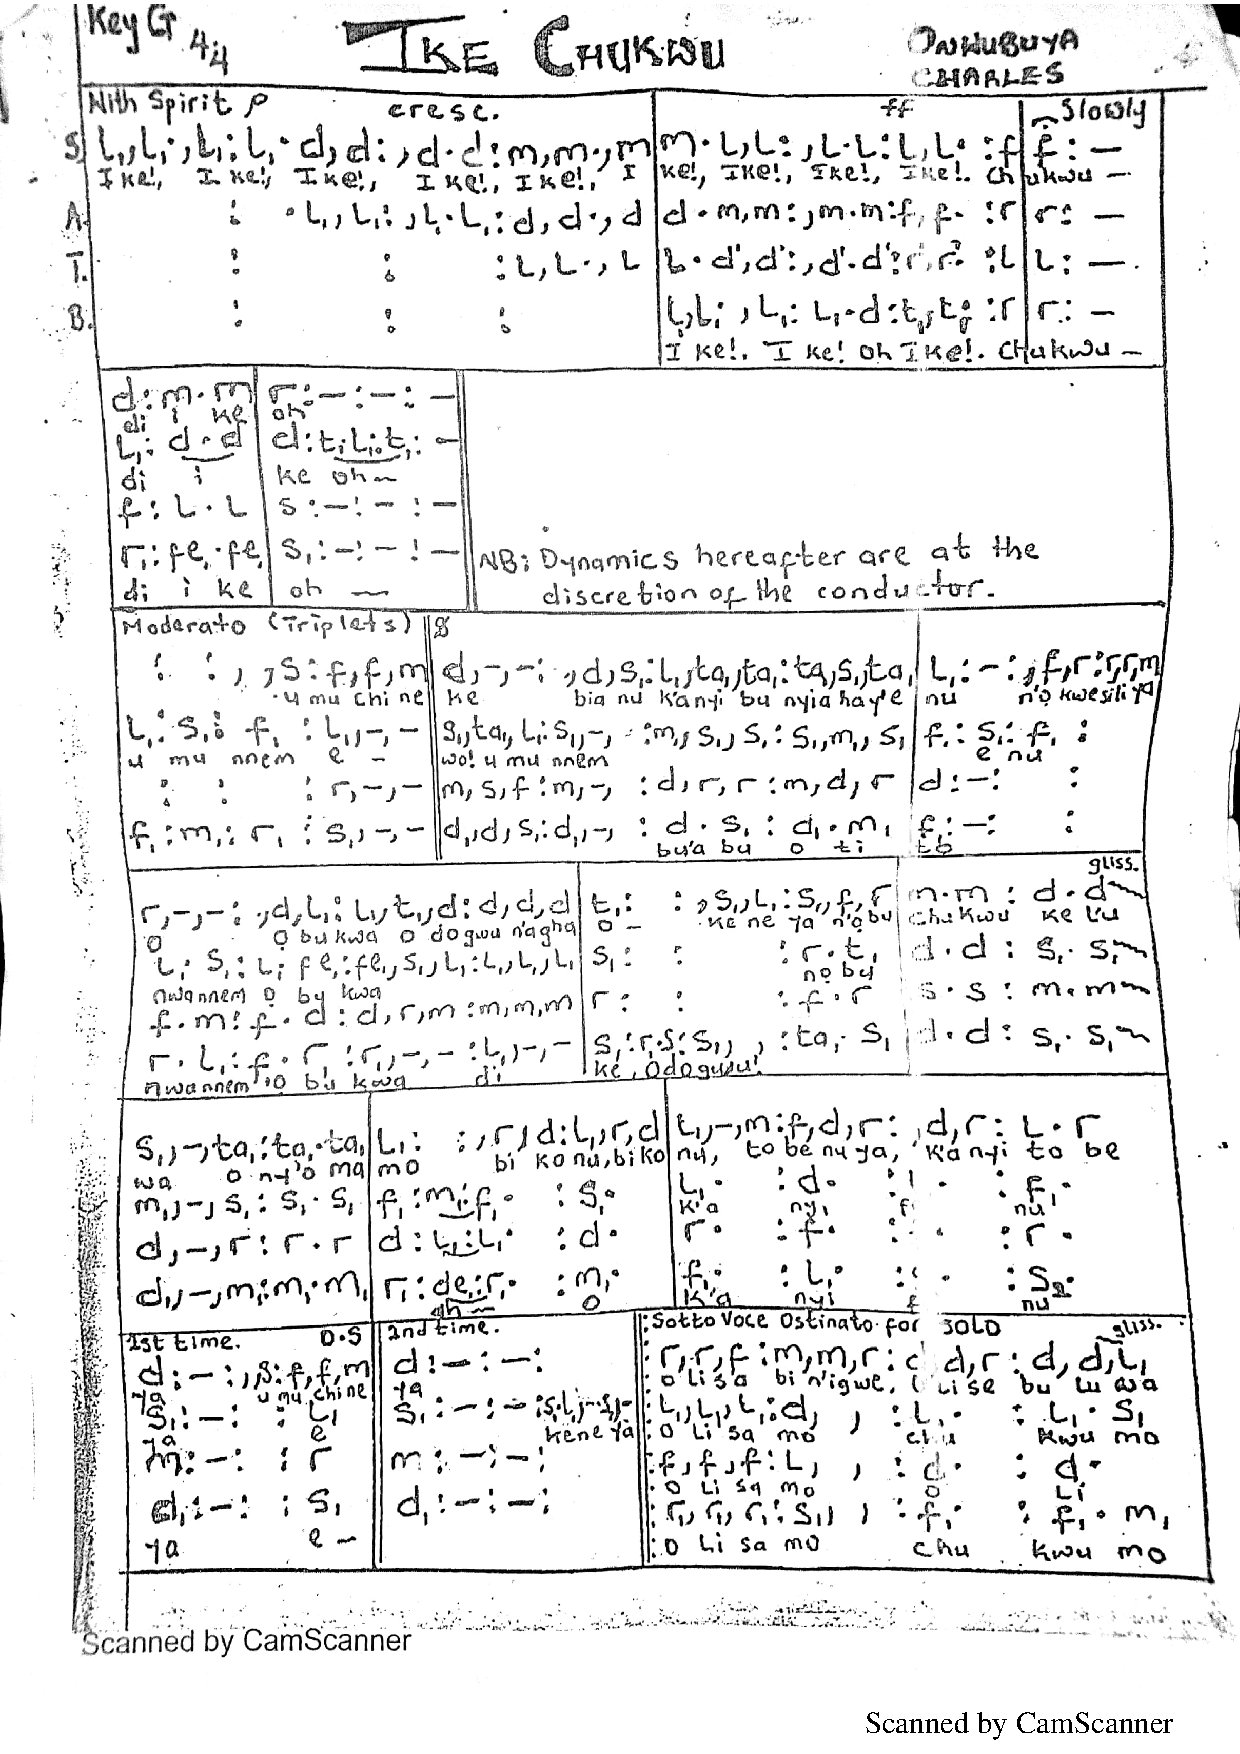 Key G 4/4 IKE CHUKWU ONWUBUYA
CHARLES
With Spirit p cresc. ff Slowly
S. l₁,l₁.,l₁:l₁.d,d:,d.d:m,m.,m m.l,l:,l.l:l,l. :f f:—
I ke!, I ke!, I ke!, I ke!, I ke!, I ke!, I ke!, I ke!, I ke!. Chukwu —
A. : .l₁,l₁:,l₁.l₁:d,d.,d d.m,m:,m.m:f,f. :r r:—
T. : : :l,l.,l l.d',d':,d'.d':r',r'. :l l:—.
B. : : : l₁,l₁:,l₁:l₁.d:t₁,t₁. :r r:—
I ke!. I ke! oh I ke!. Chukwu —
d:m.m r:—:—:—
di i ke oh
l₁:d.d d:t₁.l₁:t₁:—
di i ke oh ~
f:l.l s:—:—:—
r₁:fe₁.fe₁ s₁:—:—:—
di i ke oh —
NB: Dynamics hereafter are at the
discretion of the conductor.
Moderato (Triplets) 𝄋
: :, ,s:f,f,m d,-,-: ,d,s₁:l₁,ta₁,ta₁:ta₁,s₁,ta₁ l₁:-:,f,r:r,r,m
u mu chi ne ke bia nu k'anyi bu nyia hay'e nu n'o kwesili ya
l₁:s₁: f₁ :l₁,-,- s₁,ta₁,l₁:s₁,-, :m₁,s₁,s₁:s₁,m₁,s₁ f₁:s₁:f₁ :
u mu nnem e - wo! u mu nnem e nu
: : :r,-,- m,s,f:m,-, :d,r,r:m,d,r d:-: :
f₁:m₁:r₁ :s₁,-,- d₁,d,s₁:d₁,-, : d.s₁:d₁.m₁ f₁:-: :
bu'a bu o ti to
gliss.
r,-,-:,d,l₁:l₁,t₁,d:d,d,d t₁: :,s₁,l₁:s₁,f₁,r m.m:d.d~
o o bu kwa o dogwu n'agha o - ke ne ya n'o bu chukwu ke lu
l₁.s₁:l₁.fe₁:fe₁,s₁,l₁:l₁,l₁,l₁ s₁: : :r.t₁ d.d:s₁.s₁~
nwannem o bu kwa no bu
f.m:f.d:d,r,m:m,m,m r: : :f.r s.s:m.m~
r.l₁:f.r₁:r₁,-,-:l₁,-,- s₁:r.s:s₁, , :ta₁.s₁ d.d:s₁.s₁~
nwannem o bu kwa di ke, Odogwu!
s₁,-,ta₁:ta₁.ta₁ l₁: :,r,d:l₁,r,d t₁,-,m:f,d,r:,d,r:l.r
wa o ny'o ma mo bi ko nu, bi ko nu, to be nu ya, k'anyi to be
m₁,-,s₁:s₁.s₁ f₁:m₁:f₁. :s₁. l₁. :d. : . :f₁.
k'a nyi nu
d,-,r:r.r d:l₁:l₁. :d. r. :f. : . :r.
d₁,-,m₁:m₁.m₁ r₁:de₁:r₁. :m₁. f₁. :l₁. : . :s₁.
ah — o k'a nyi nu
1st time. D.S 2nd time. Sotto Voce Ostinato for SOLO gliss.
d:-:,s:f,f,m d:—:—: :r,r,f:m,m,r: d,r:d,d,l₁
ya u mu chi ne ya o li sa bi n'igwe, li se bu lu wa
s₁:-: :l₁ s₁:-:-:s₁.l₁,-s₁,- :l₁,l₁,l₁:d, , :l₁. :l₁.s₁
ya e ke ne ya o li sa mo chu kwu mo
m:-: :r m:—:—: :f,f,f:l, , :d. :d.
o li sa mo o li
d₁:-: :s₁ d₁:—:—: :r₁,r₁,r₁:s₁, , :f₁. :f₁.m₁
ya e - :o li sa mo chu kwu mo
Scanned by CamScanner
Scanned by CamScanner